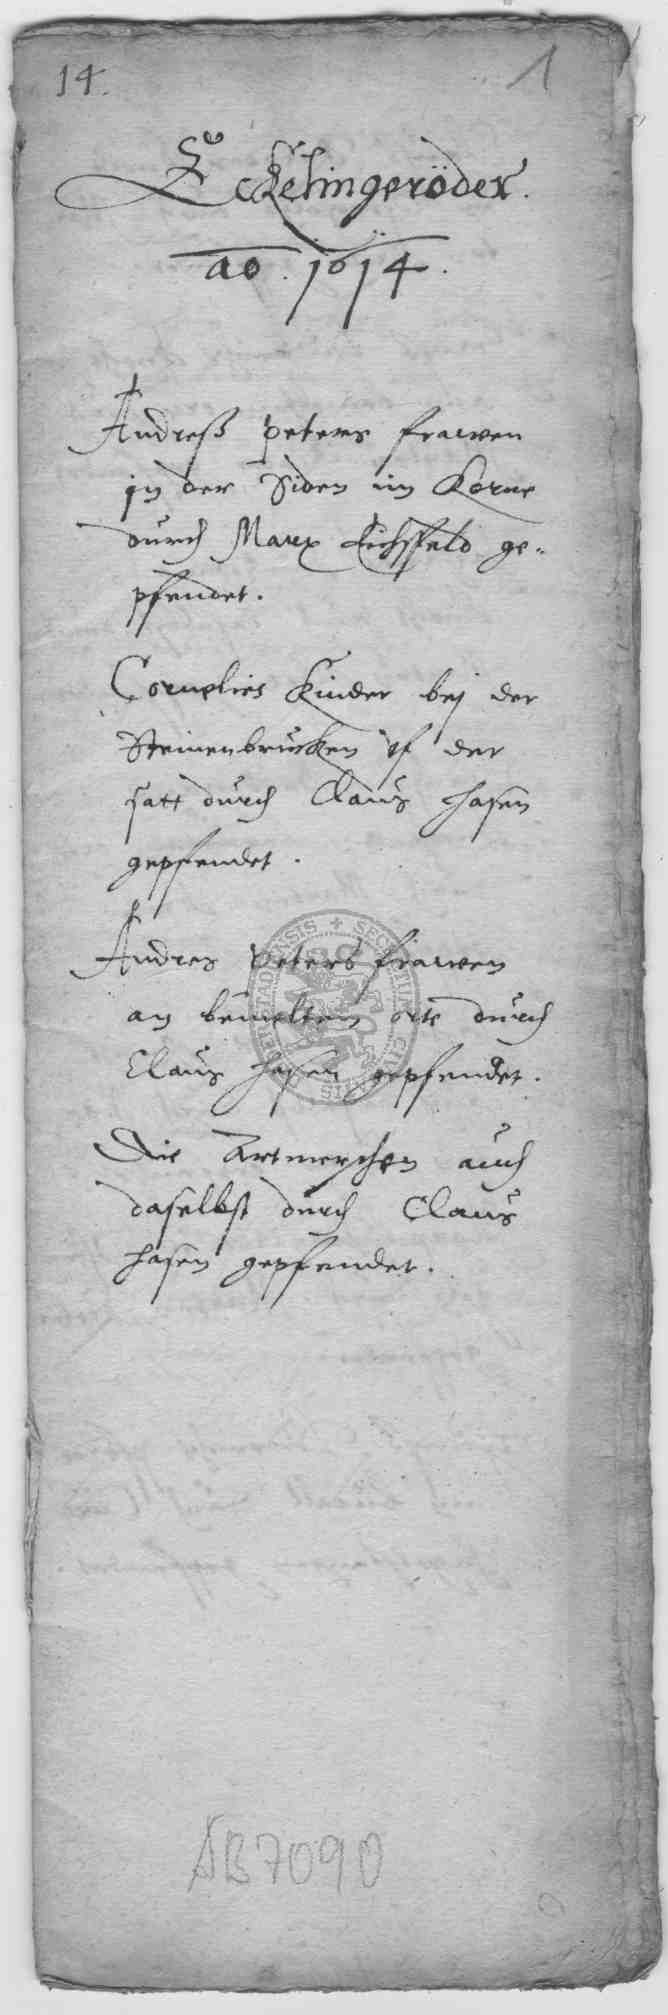 14.
1
Eckelingeröder.
ao. 1614.
Andreß peters frawen
in der Siden im Korne
durch Marx Eichsfeld ge-
pfendet.
Cornelies Kinder bej der
Steinenbrucken uf der
satt durch Claus hasen
gepfendet.
Andres peters frawen
an bemeltem orte durch
Claus hasen gepfendet.
Die
auch
daselbst durch Claus
hasen gepfendet.
SECRETUM
AB7090